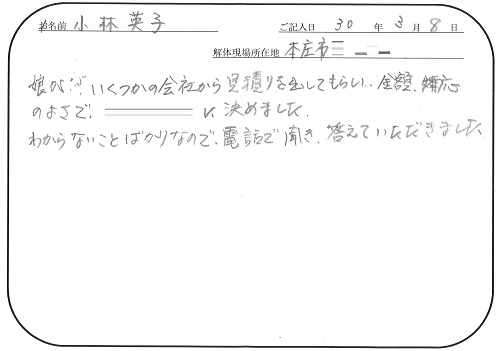 お名前 小林英子 ご記入日 30年3月8日
解体現場所在地 本庄市
娘がいくつかの会社から見積りを出してもらい、金額、対応
のよさで、 に決めました。
わからないことばかりなので、電話で聞き、答えていただきました